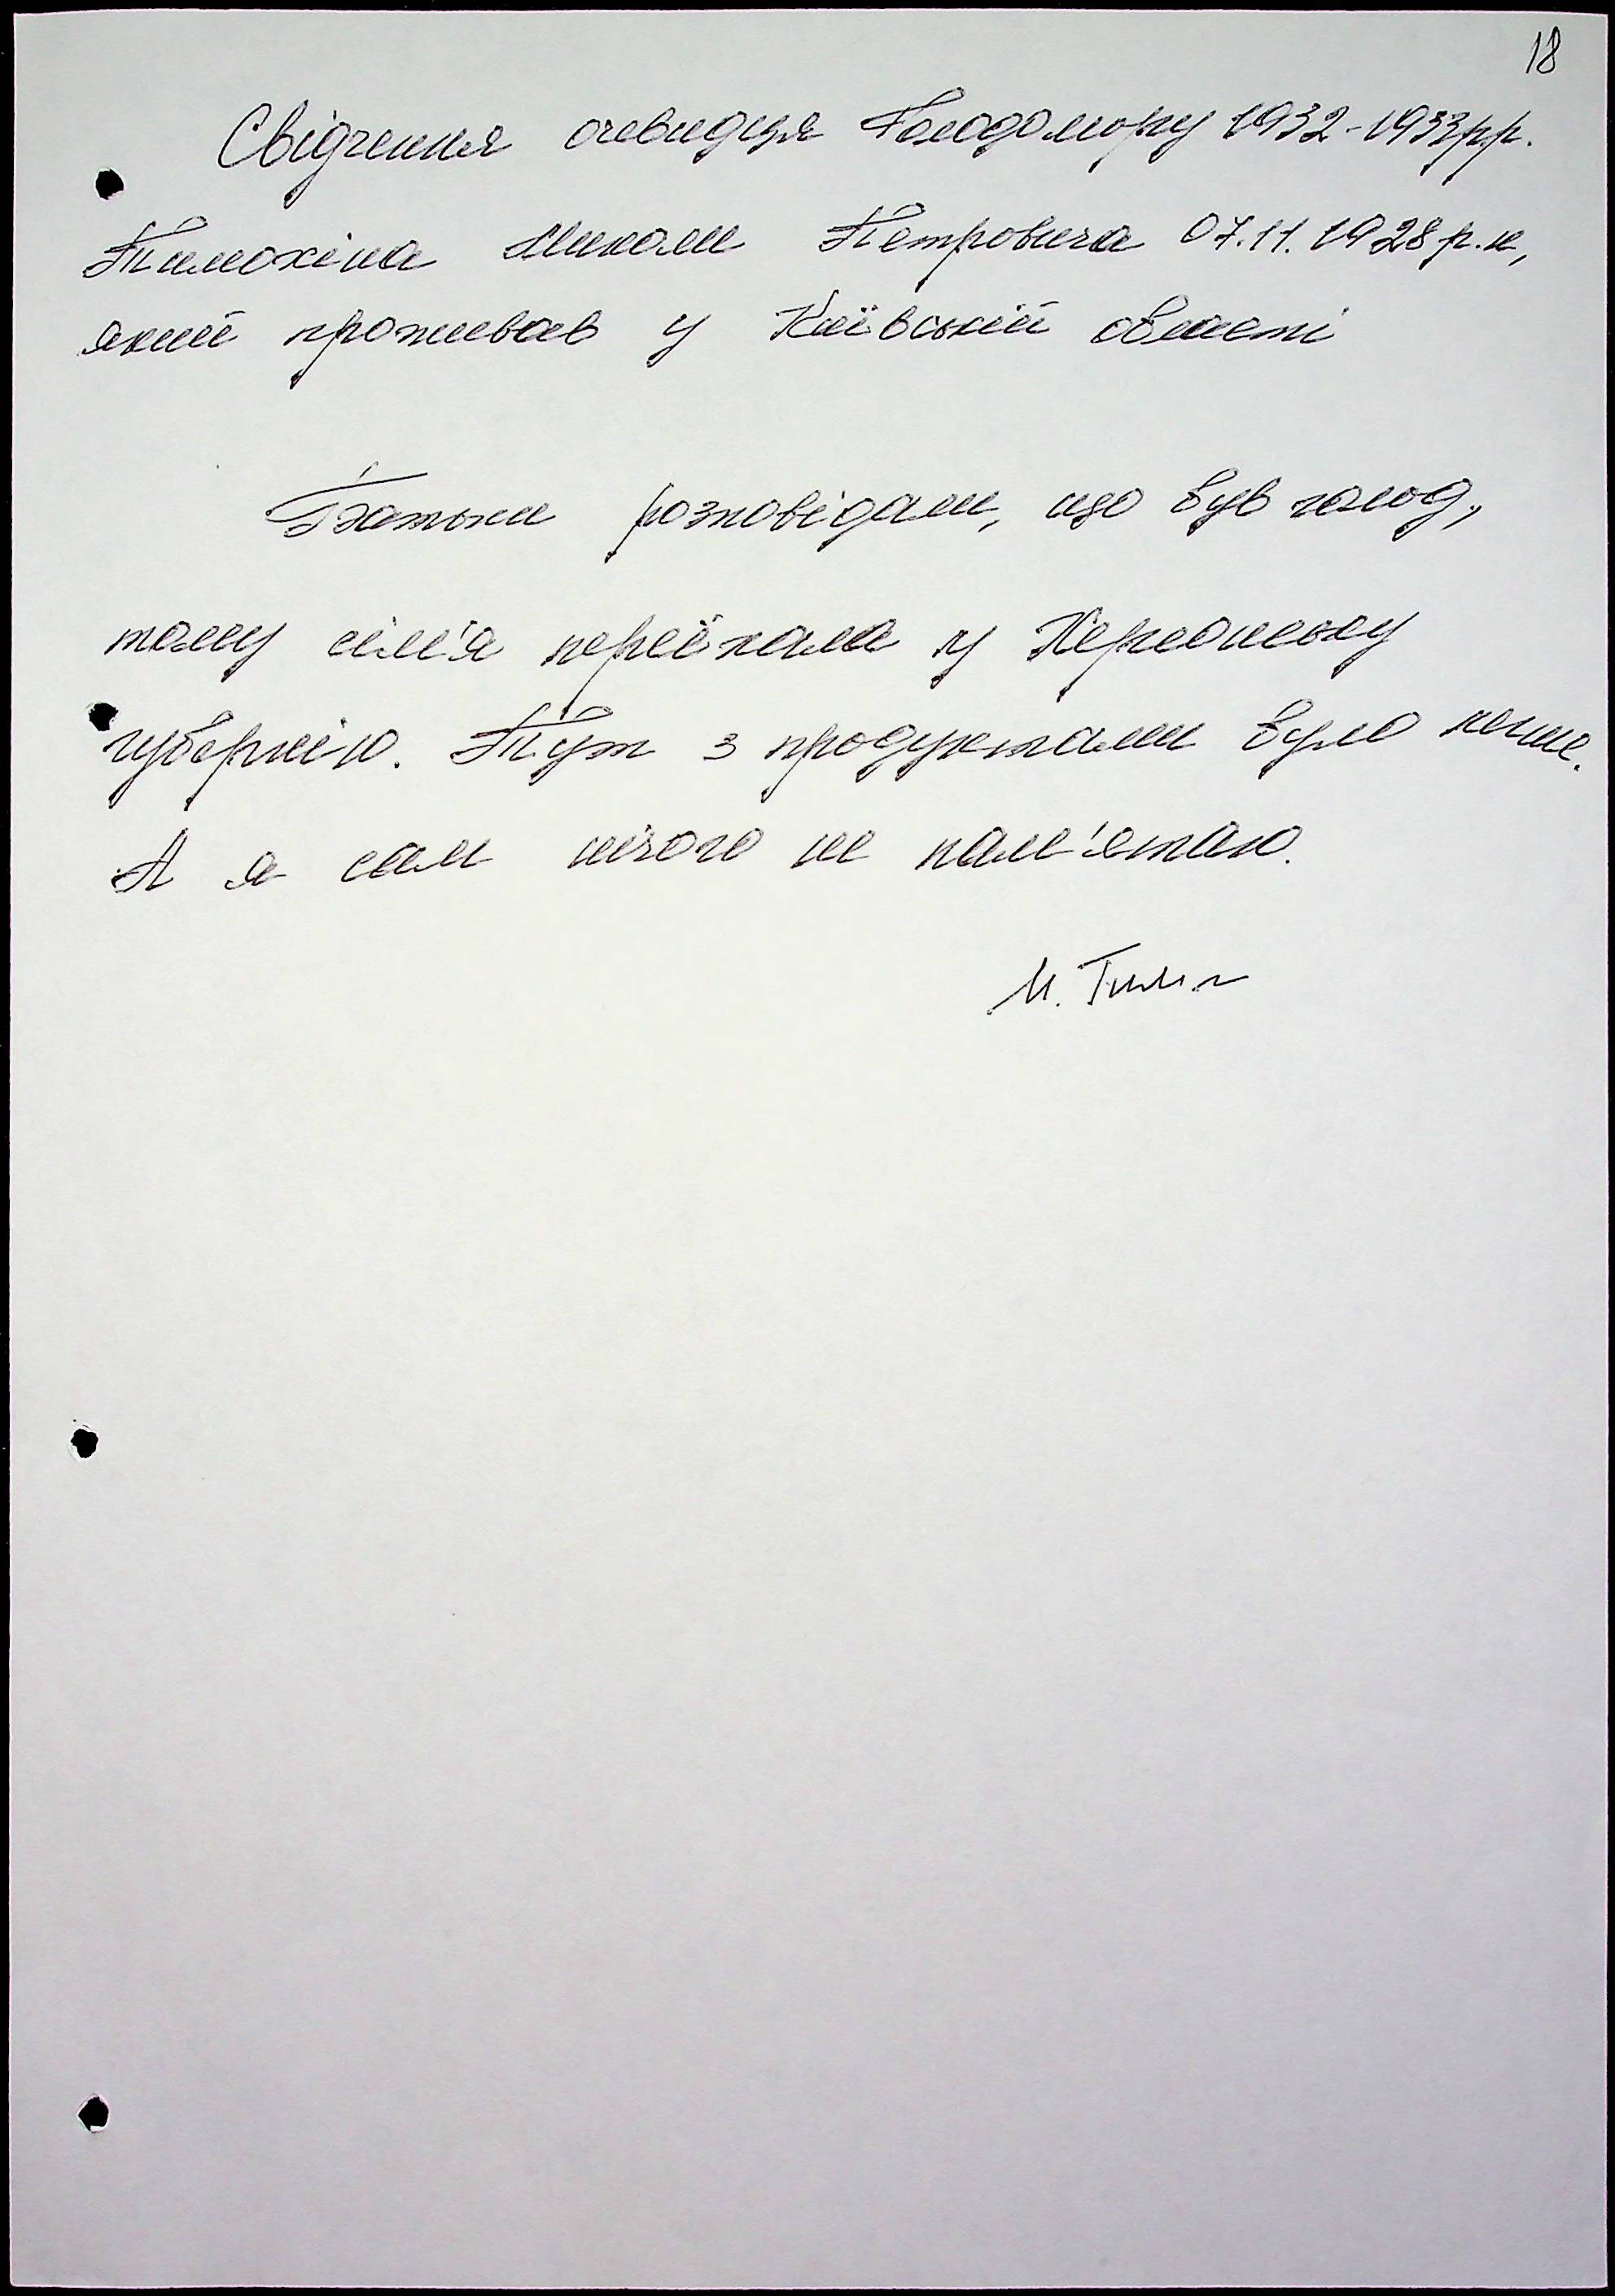 18
Свідчення очевидця Голодомору 1932-1933рр.
Тимохіна Миколи Петровича 07.11.1928 р.н,
який проживав у Київській області
Батьки розповідали, що був голод,
тому сім'я переїхала у Херсонську
губернію. Тут з продуктами було легше.
А я сам нічого не пам'ятаю.
М. Тим